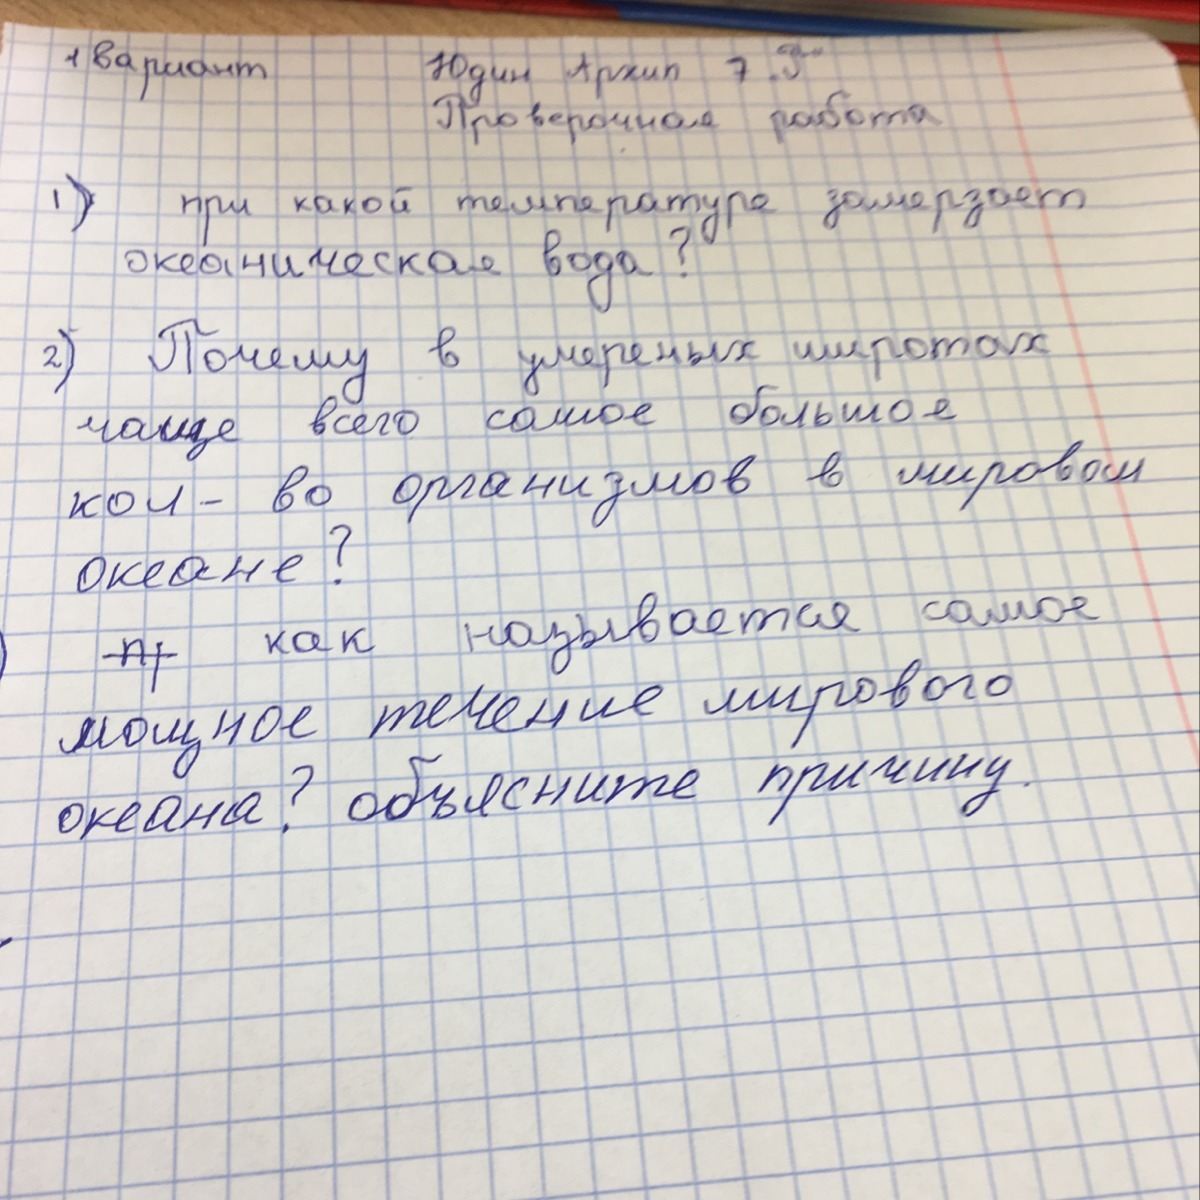 1 Вариант Юдин Архип 7
Проверочная работа
1) при какой температуре замерзает
океаническая вода?
2) Почему в умереных широтах
чаще всего самое большое
кол-во организмов в мировом
океане?
как называется самое
мощное течение мирового
океана? объясните причину.